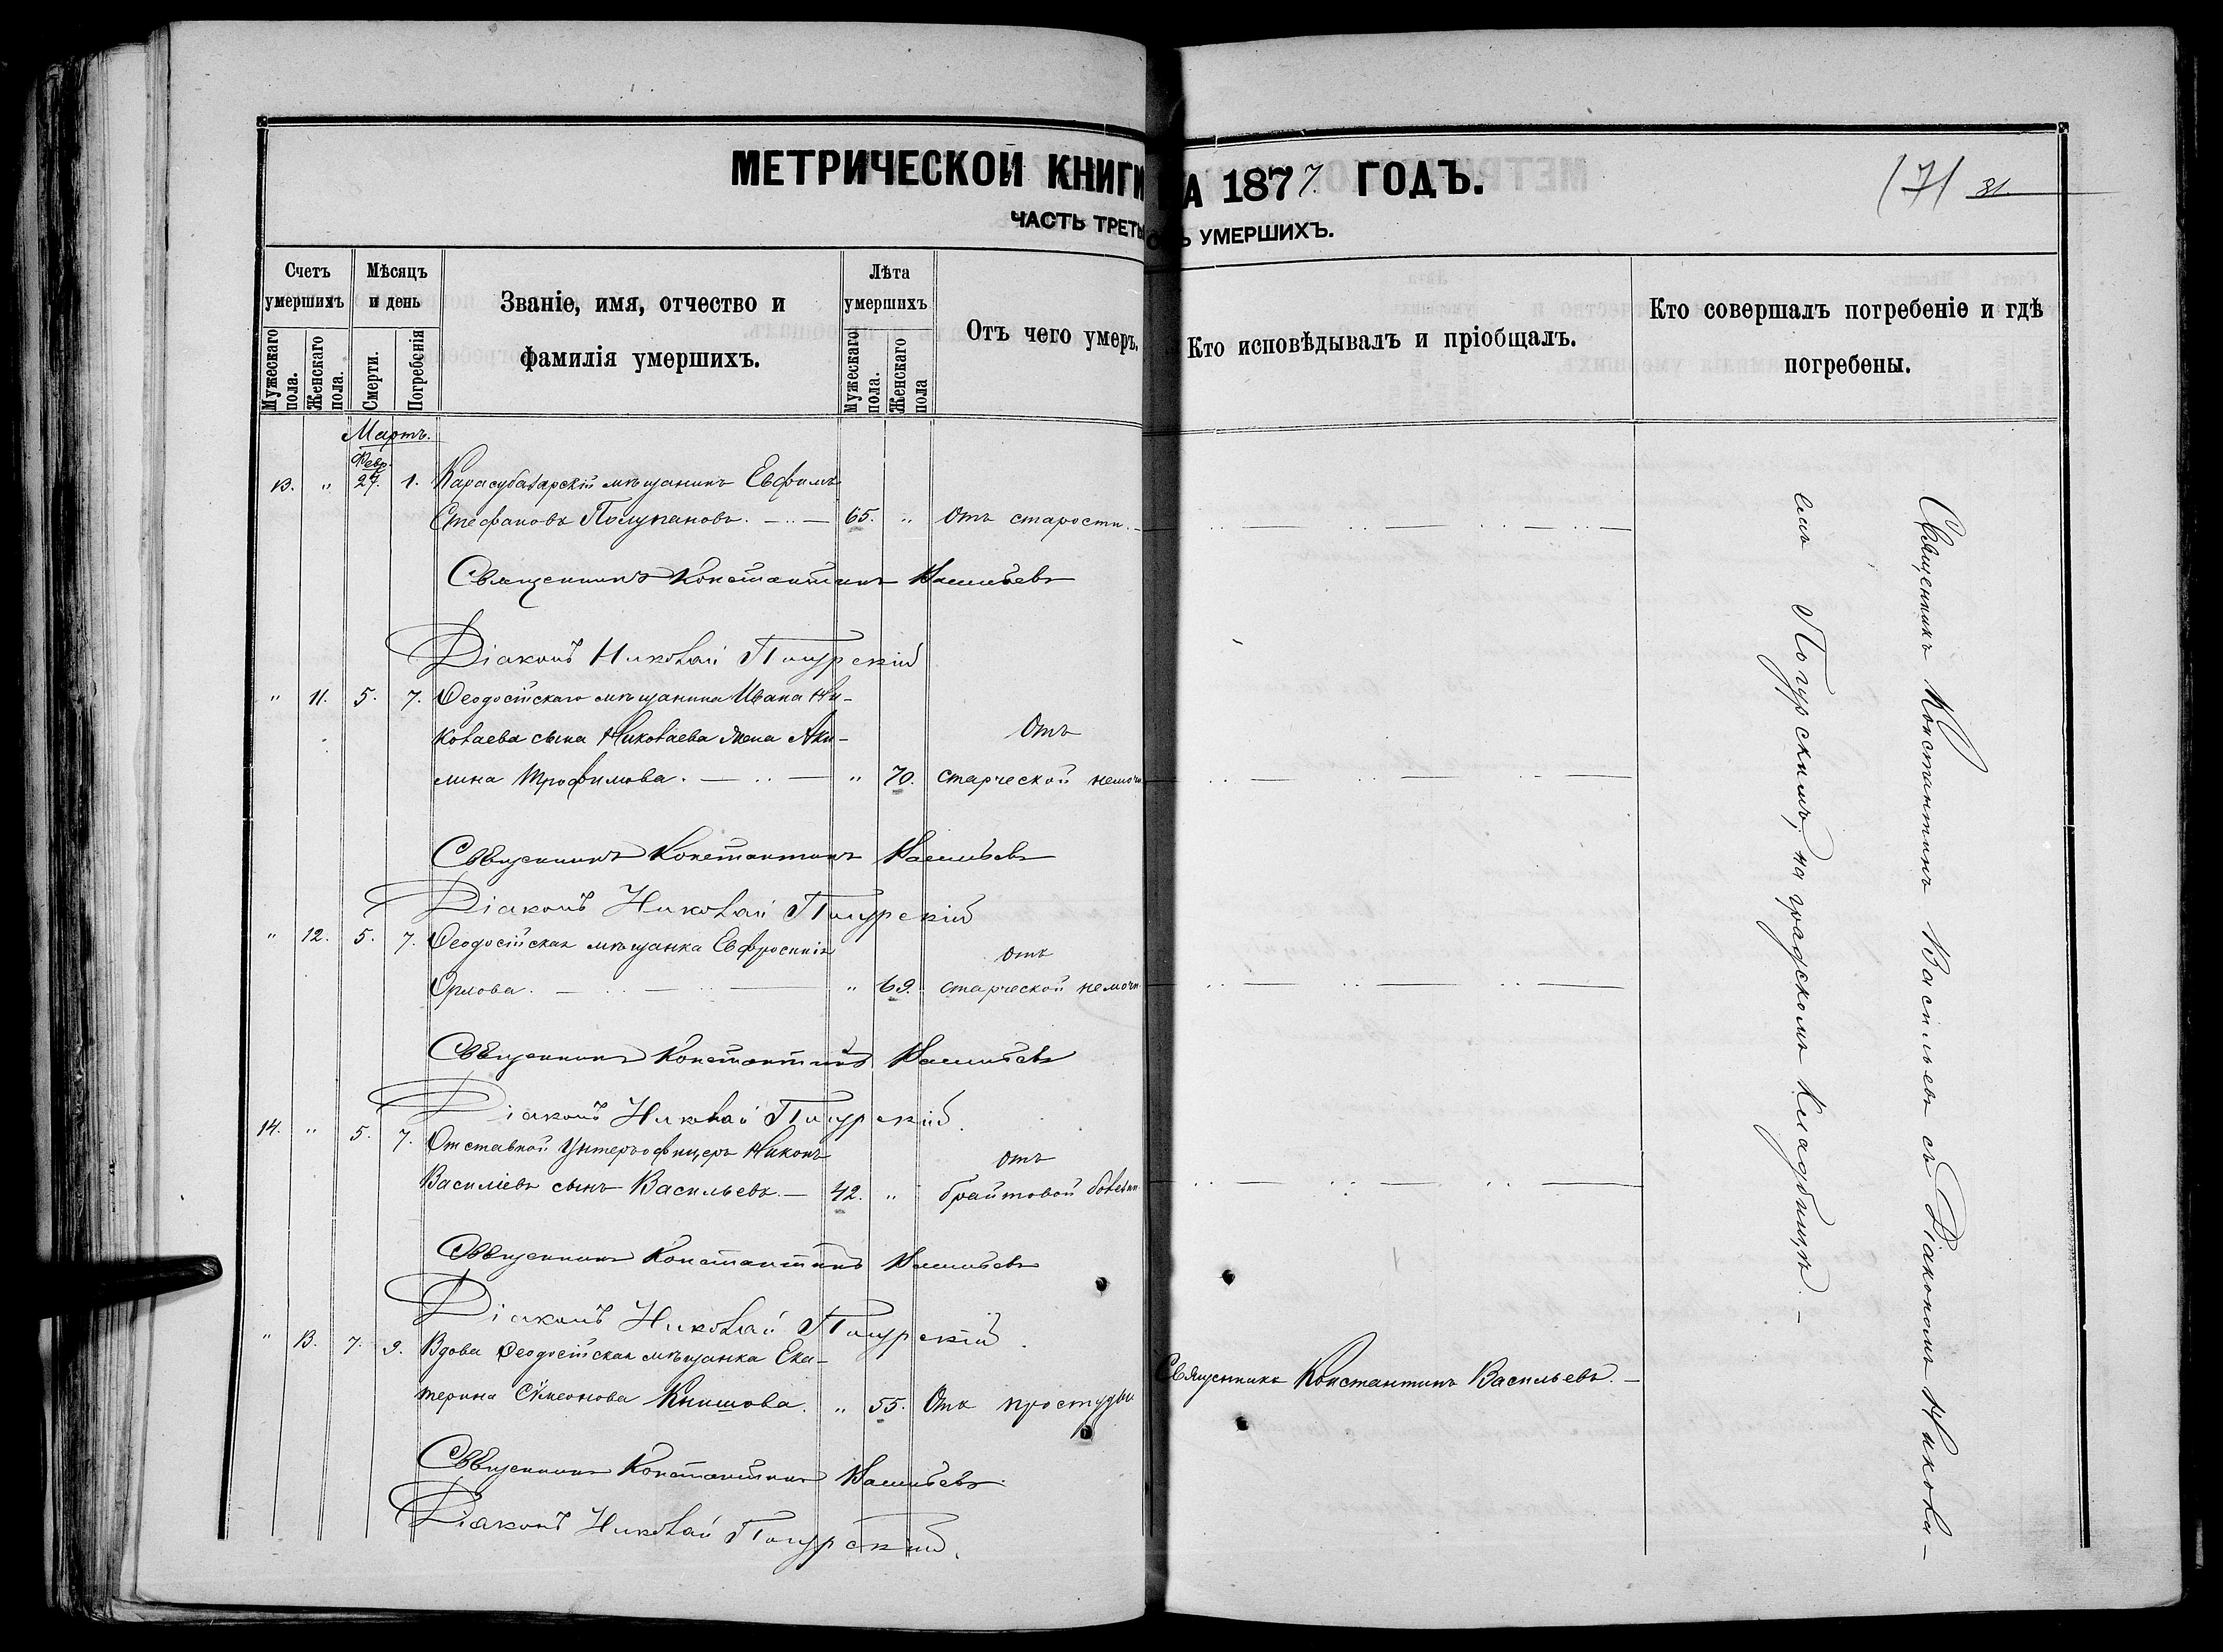 МЕТРИЧЕСКОЙ КНИГИ
А 1877 ГОДЪ.
171 31.
ЧАСТЬ ТРЕТЬ
Ъ УМЕРШИХЪ.
Счетъ умершихъ
Мужескаго пола.
Женскаго пола.
Мѣсяцъ и день
Смерти.
Погребенія
Званіе, имя, отчество и
фамилія умершихъ.
Лѣта умершихъ
Мужескаго пола.
Женскаго пола
Отъ чего умеръ.
Кто исповѣдывалъ и пріобщалъ.
Кто совершалъ погребеніе и гдѣ
погребены.
Мартъ.
Февр.
13. " 27. 1. Карасубазарскій мѣщанинъ Евфимъ
Стефановъ Полупановъ. — 65. " Отъ старости. —
Священникъ Константинъ Васильевъ
Діаконъ Николай Погурскій
" 11. 5. 7. Ѳеодосійскаго мѣщанина Ивана Ни-
колаева сына Николаева жена Аки- Отъ
лина Трофимова. — " 70. старческой немочи
Священникъ Константинъ Васильевъ
Діаконъ Николай Погурскій
" 12. 5. 7. Ѳеодосійская мѣщанка Евфросинія отъ
Орлова. — " 69. старческой немочи
Священникъ Константинъ Васильевъ
Діаконъ Николай Погурскій.
14. " 5. 7. Отставной Унтеръ-офицеръ Никонъ отъ
Василіевъ сынъ Васильевъ. — 42. "
Священникъ Константинъ Васильевъ
Діаконъ Николай Погурскій.
" 13. 7. 9. Вдова Ѳеодосійская мѣщанка Ека-
терина Симеонова Книшова. " 55. Отъ простуды
Священникъ Константинъ Васильевъ. —
Священникъ Константинъ Васильевъ.
Діаконъ Николай Погурскій.
Священникъ Константинъ Васильевъ съ Діакономъ Никола-
емъ Погурскимъ, на градскомъ кладбищѣ. —